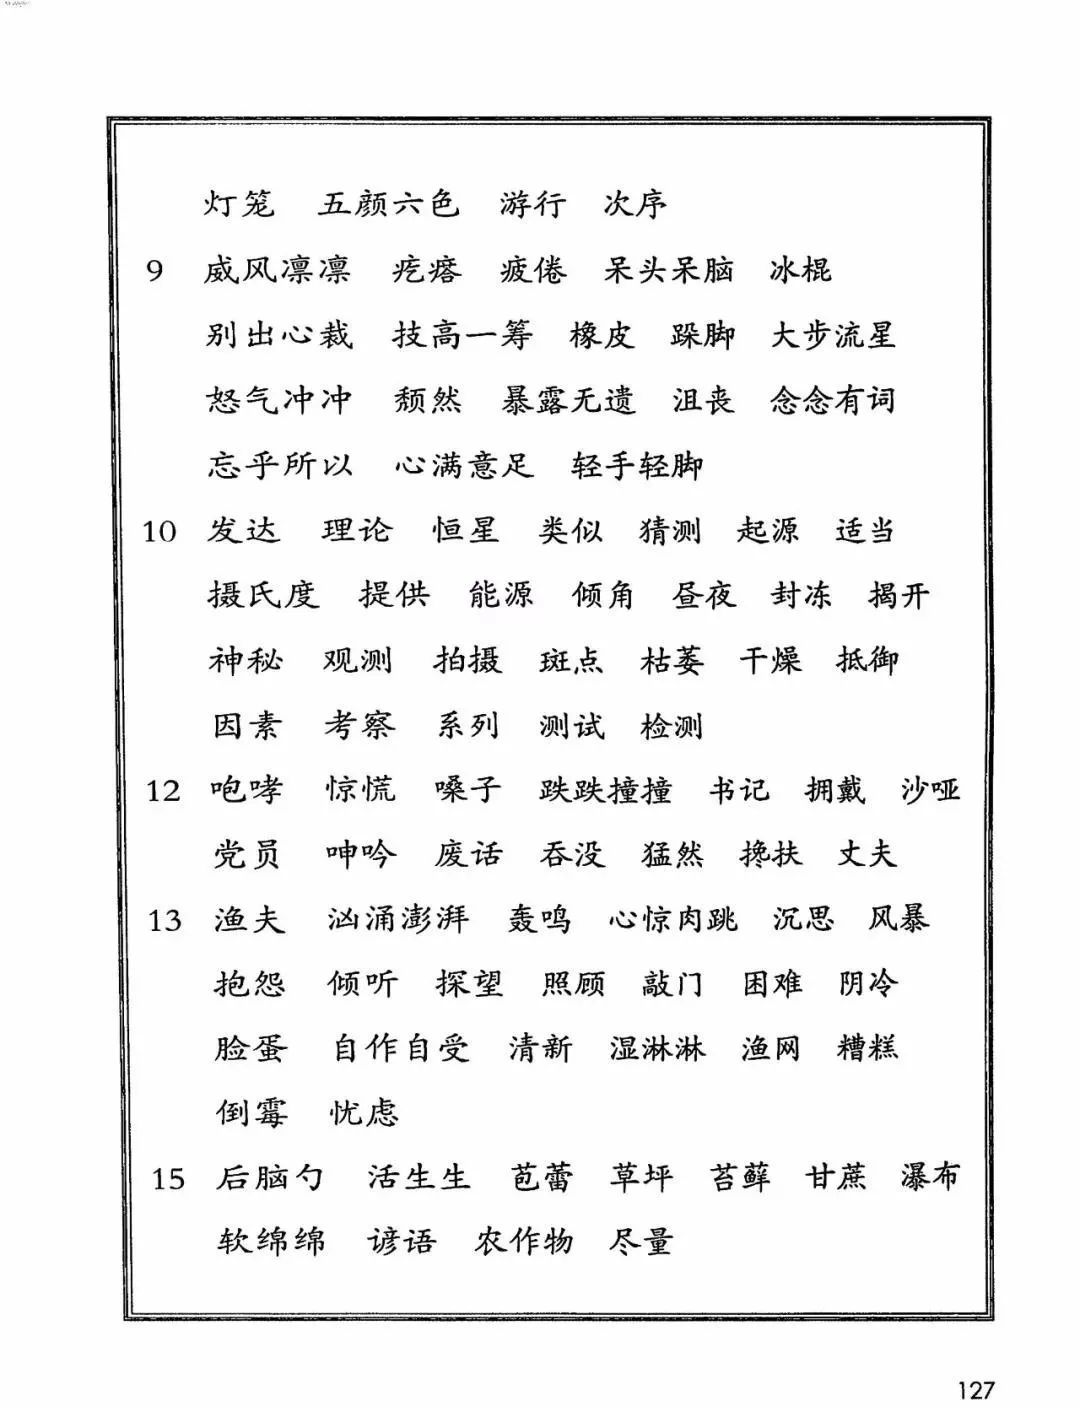 灯笼 五颜六色 游行 次序
9 威风凛凛 疙瘩 疲倦 呆头呆脑 冰棍
别出心裁 技高一筹 橡皮 跺脚 大步流星
怒气冲冲 颓然 暴露无遗 沮丧 念念有词
忘乎所以 心满意足 轻手轻脚
10 发达 理论 恒星 类似 猜测 起源 适当
摄氏度 提供 能源 倾角 昼夜 封冻 揭开
神秘 观测 拍摄 斑点 枯萎 干燥 抵御
因素 考察 系列 测试 检测
12 咆哮 惊慌 嗓子 跌跌撞撞 书记 拥戴 沙哑
党员 呻吟 废话 吞没 猛然 搀扶 丈夫
13 渔夫 汹涌澎湃 轰鸣 心惊肉跳 沉思 风暴
抱怨 倾听 探望 照顾 敲门 困难 阴冷
脸蛋 自作自受 清新 湿淋淋 渔网 糟糕
倒霉 忧虑
15 后脑勺 活生生 苞蕾 草坪 苔藓 甘蔗 瀑布
软绵绵 谚语 农作物 尽量
127